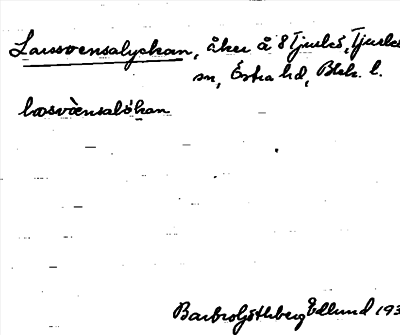 Larssvensalyckan, åker å 8 Tjurkö, Tjurkö
sn, Östra hd, Blek. l.
lasvènsalökan
Barbro Göthberg Edlund 193